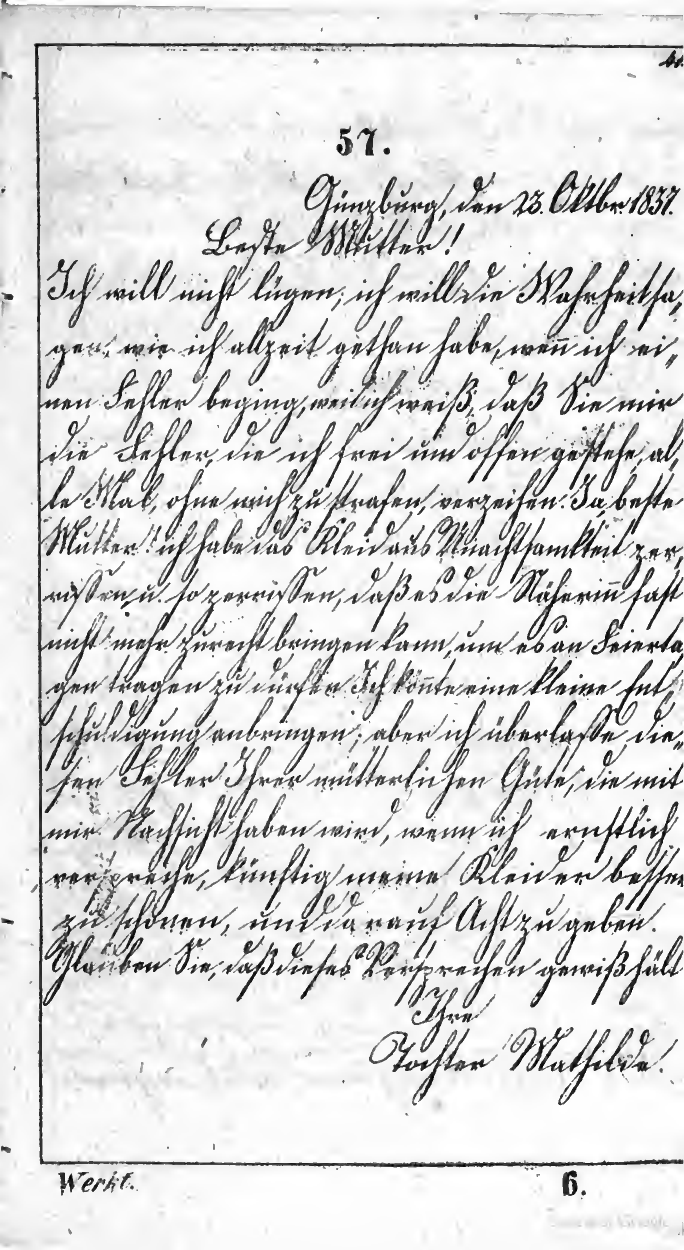 57.
Günzburg, den 23. Oktbr. 1837.
Beste Mutter!
Ich will nicht lügen, ich will die Wahrheit sa„
gen, wie ich allzeit gethan habe, wen̄ ich ei„
nen Fehler beging, weil ich weiß, daß Sie mir
die Fehler, die ich frei und offen gestehe, al„
le Mal, ohne mich zu strafen, verzeihen. Ja beste
Mutter! ich habe das Kleid aus Unachtsamkeit zer„
rissen, u. so zerrissen, daß es die Näherin̄ fast
nicht mehr zurecht bringen kann, um es an Feierta
gen tragen zu dürfen. Ich kön̄te eine kleine Ent„
schuldigung anbringen; aber ich überlasse die„
sen Fehler Ihrer mütterlichen Güte, die mit
mir Nachsicht haben wird, wenn ich ernstlich
verspreche, künftig meine Kleider besser
zu schonen, und darauf Acht zu geben.
Glauben Sie, daß dieses Versprechen gewiß hält
Ihre
Tochter Mathilde.
Werkt. 6.